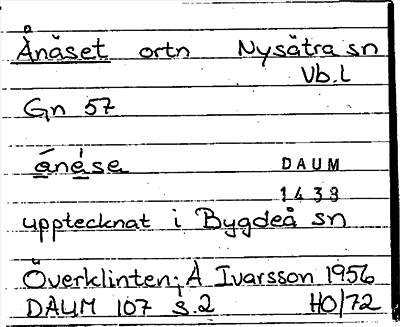 Ånäset ortn Nysätra sn
Vb.l
Gn 57
ánáse DAUM
1438
upptecknat i Bygdeå sn
Överklinten; A Ivarsson 1956
DAUM 107 s.2 HO/72